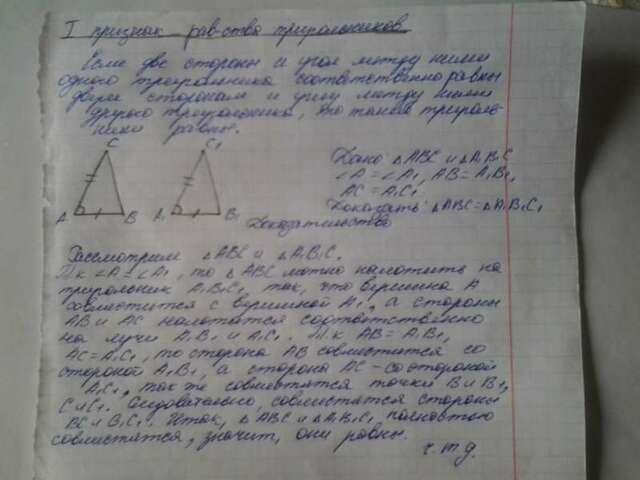 I признак рав-ства треугольников
Если две стороны и угол между ними
одного треугольника соответственно равны
двум сторонам и углу между ними
другого треугольника, то такие треуголь-
ники равны.
C C₁
A B A₁ B₁
Дано: △ABC и △A₁B₁C
∠A = ∠A₁, AB = A₁B₁,
AC = A₁C₁
Доказать: △ABC = △A₁B₁C₁
Доказательство
Рассмотрим △ABC и △A₁B₁C₁.
Т.к ∠A = ∠A₁, то △ABC можно наложить на
треугольник A₁B₁C₁, так, что вершина A
совместится с вершиной A₁, а стороны
AB и AC наложатся соответственно
на лучи A₁B₁ и A₁C₁. Т.к AB = A₁B₁,
AC = A₁C₁, то сторона AB совместится со
стороной A₁B₁, а сторона AC - со стороной
A₁C₁, так же совместятся точки B и B₁,
C и C₁. Следовательно, совместятся стороны
BC и B₁C₁. Итак, △ABC и △A₁B₁C₁ полностью
совместятся, значит, они равны.
ч.т.д.